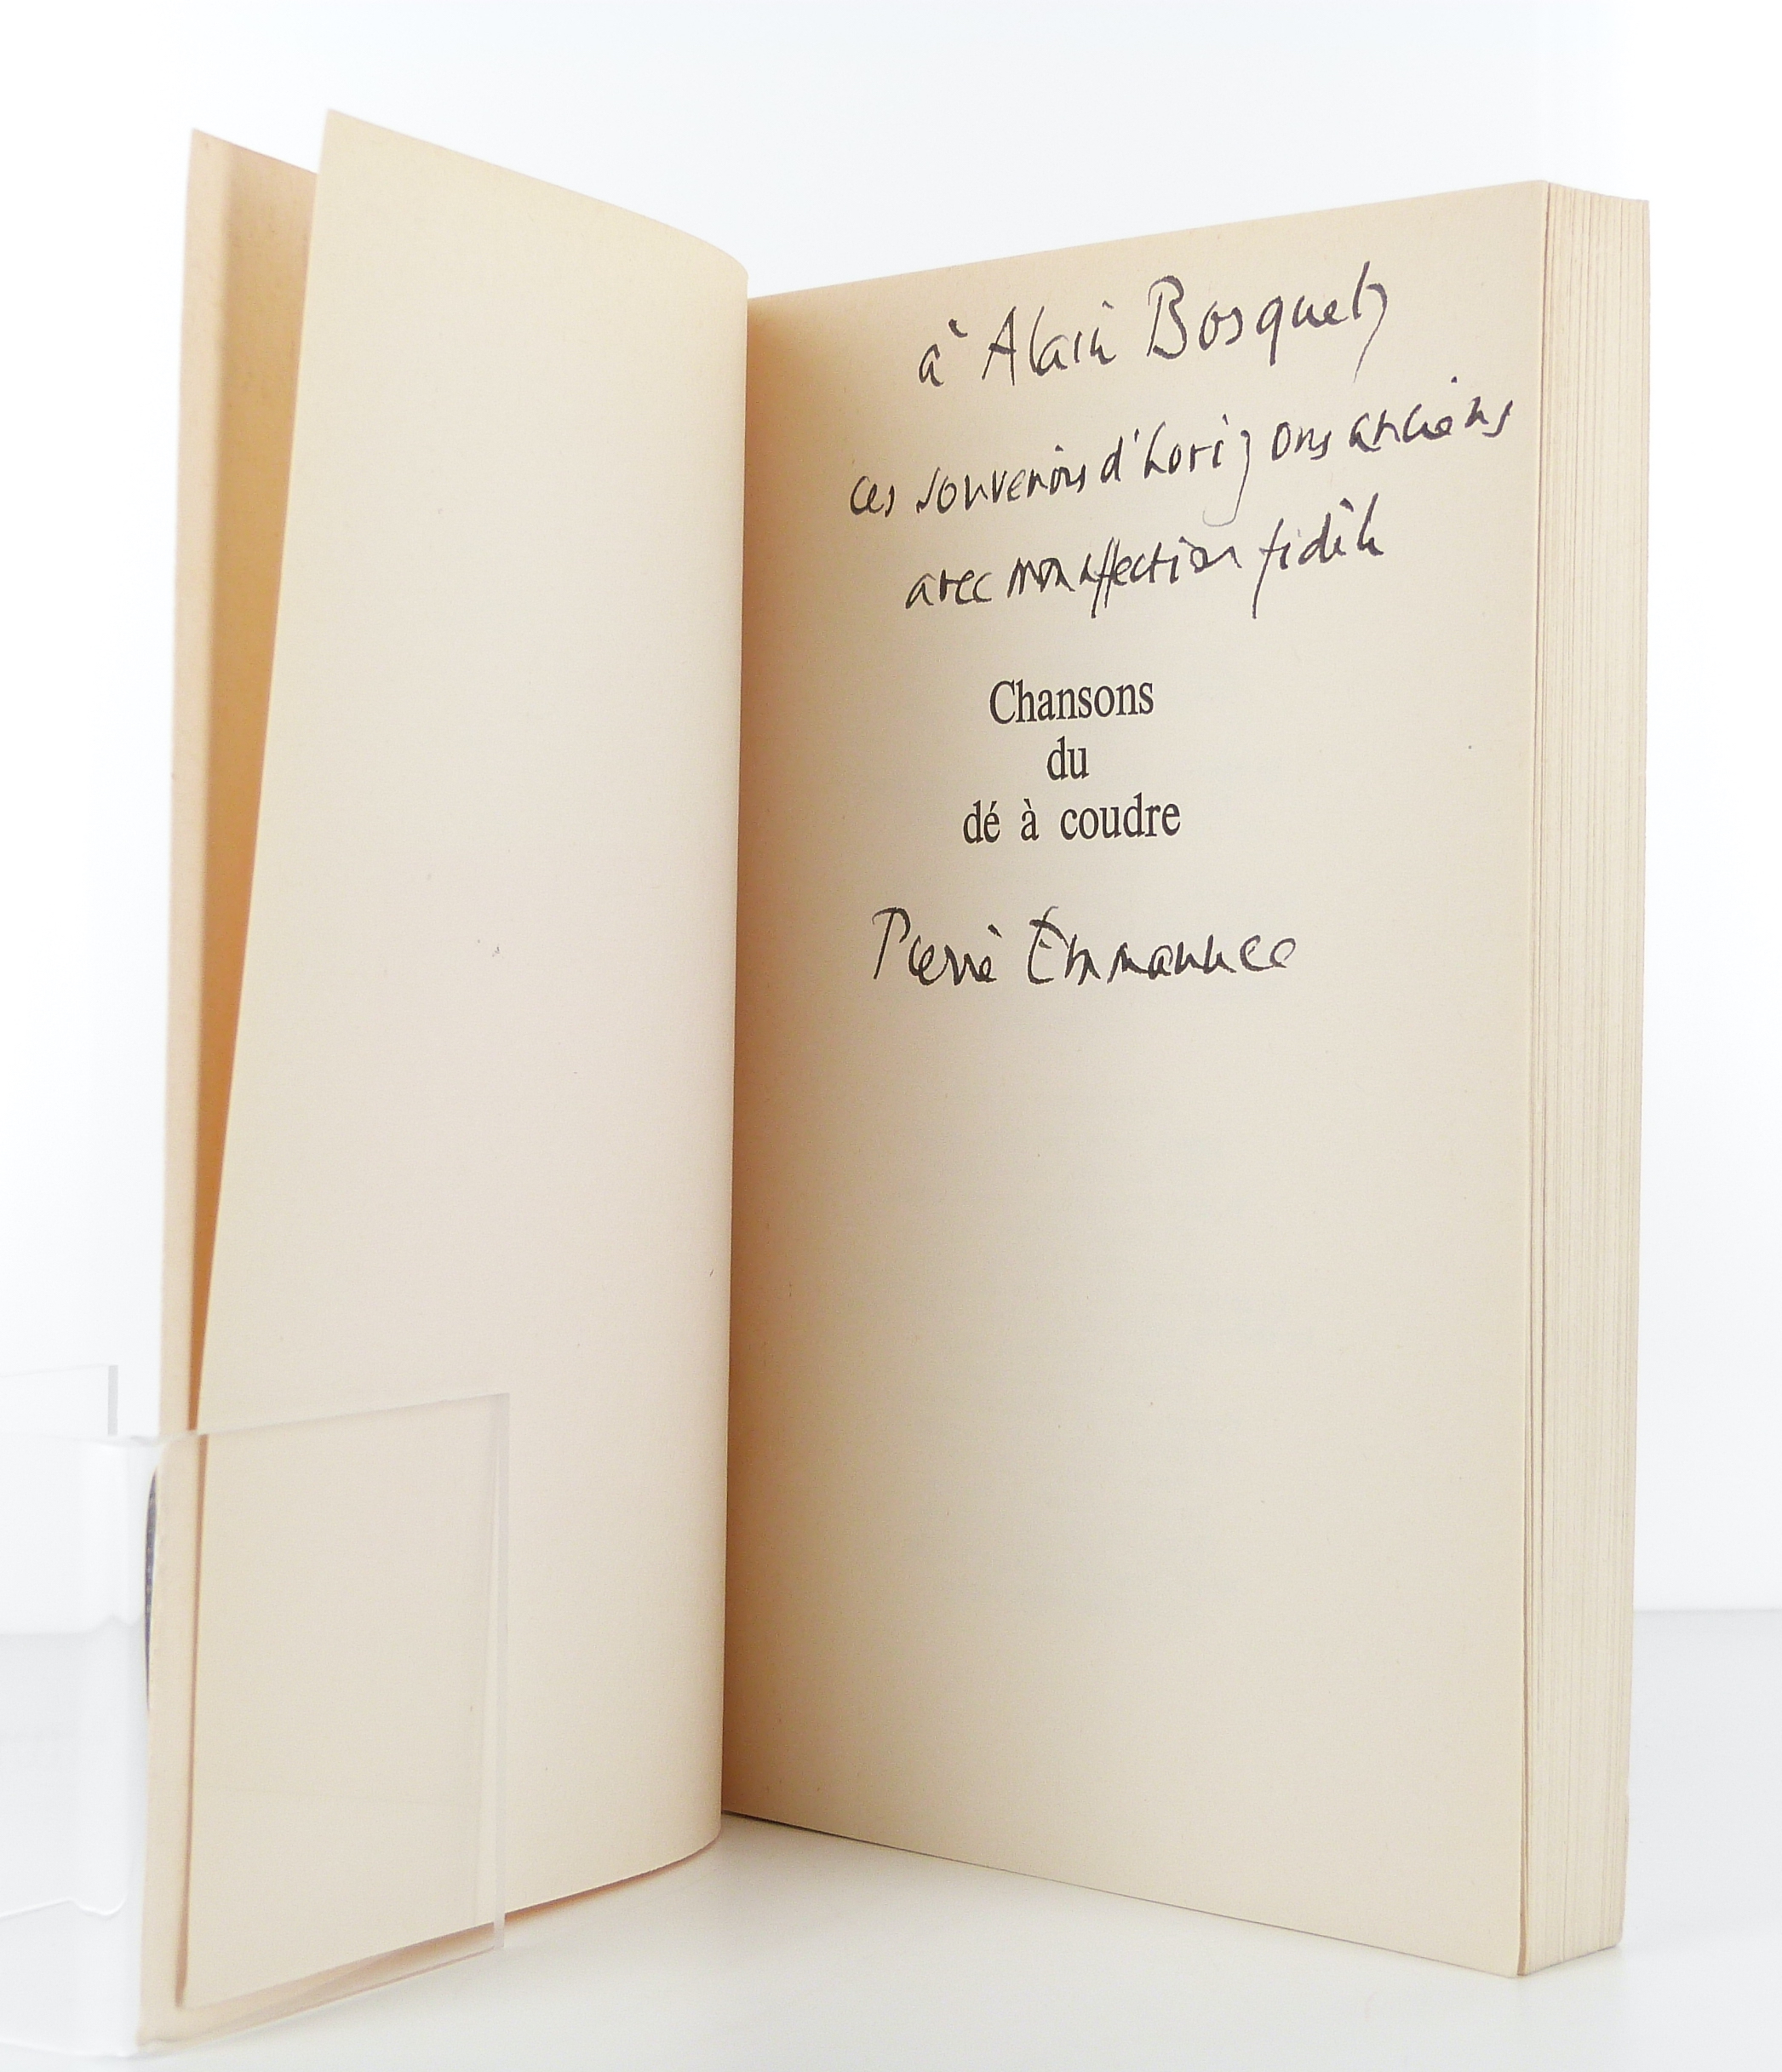 à Alain Bosquet
ces souvenirs d'horizons anciens
avec mon affection fidèle
Chansons
du
dé à coudre
Pierre Emmanuel